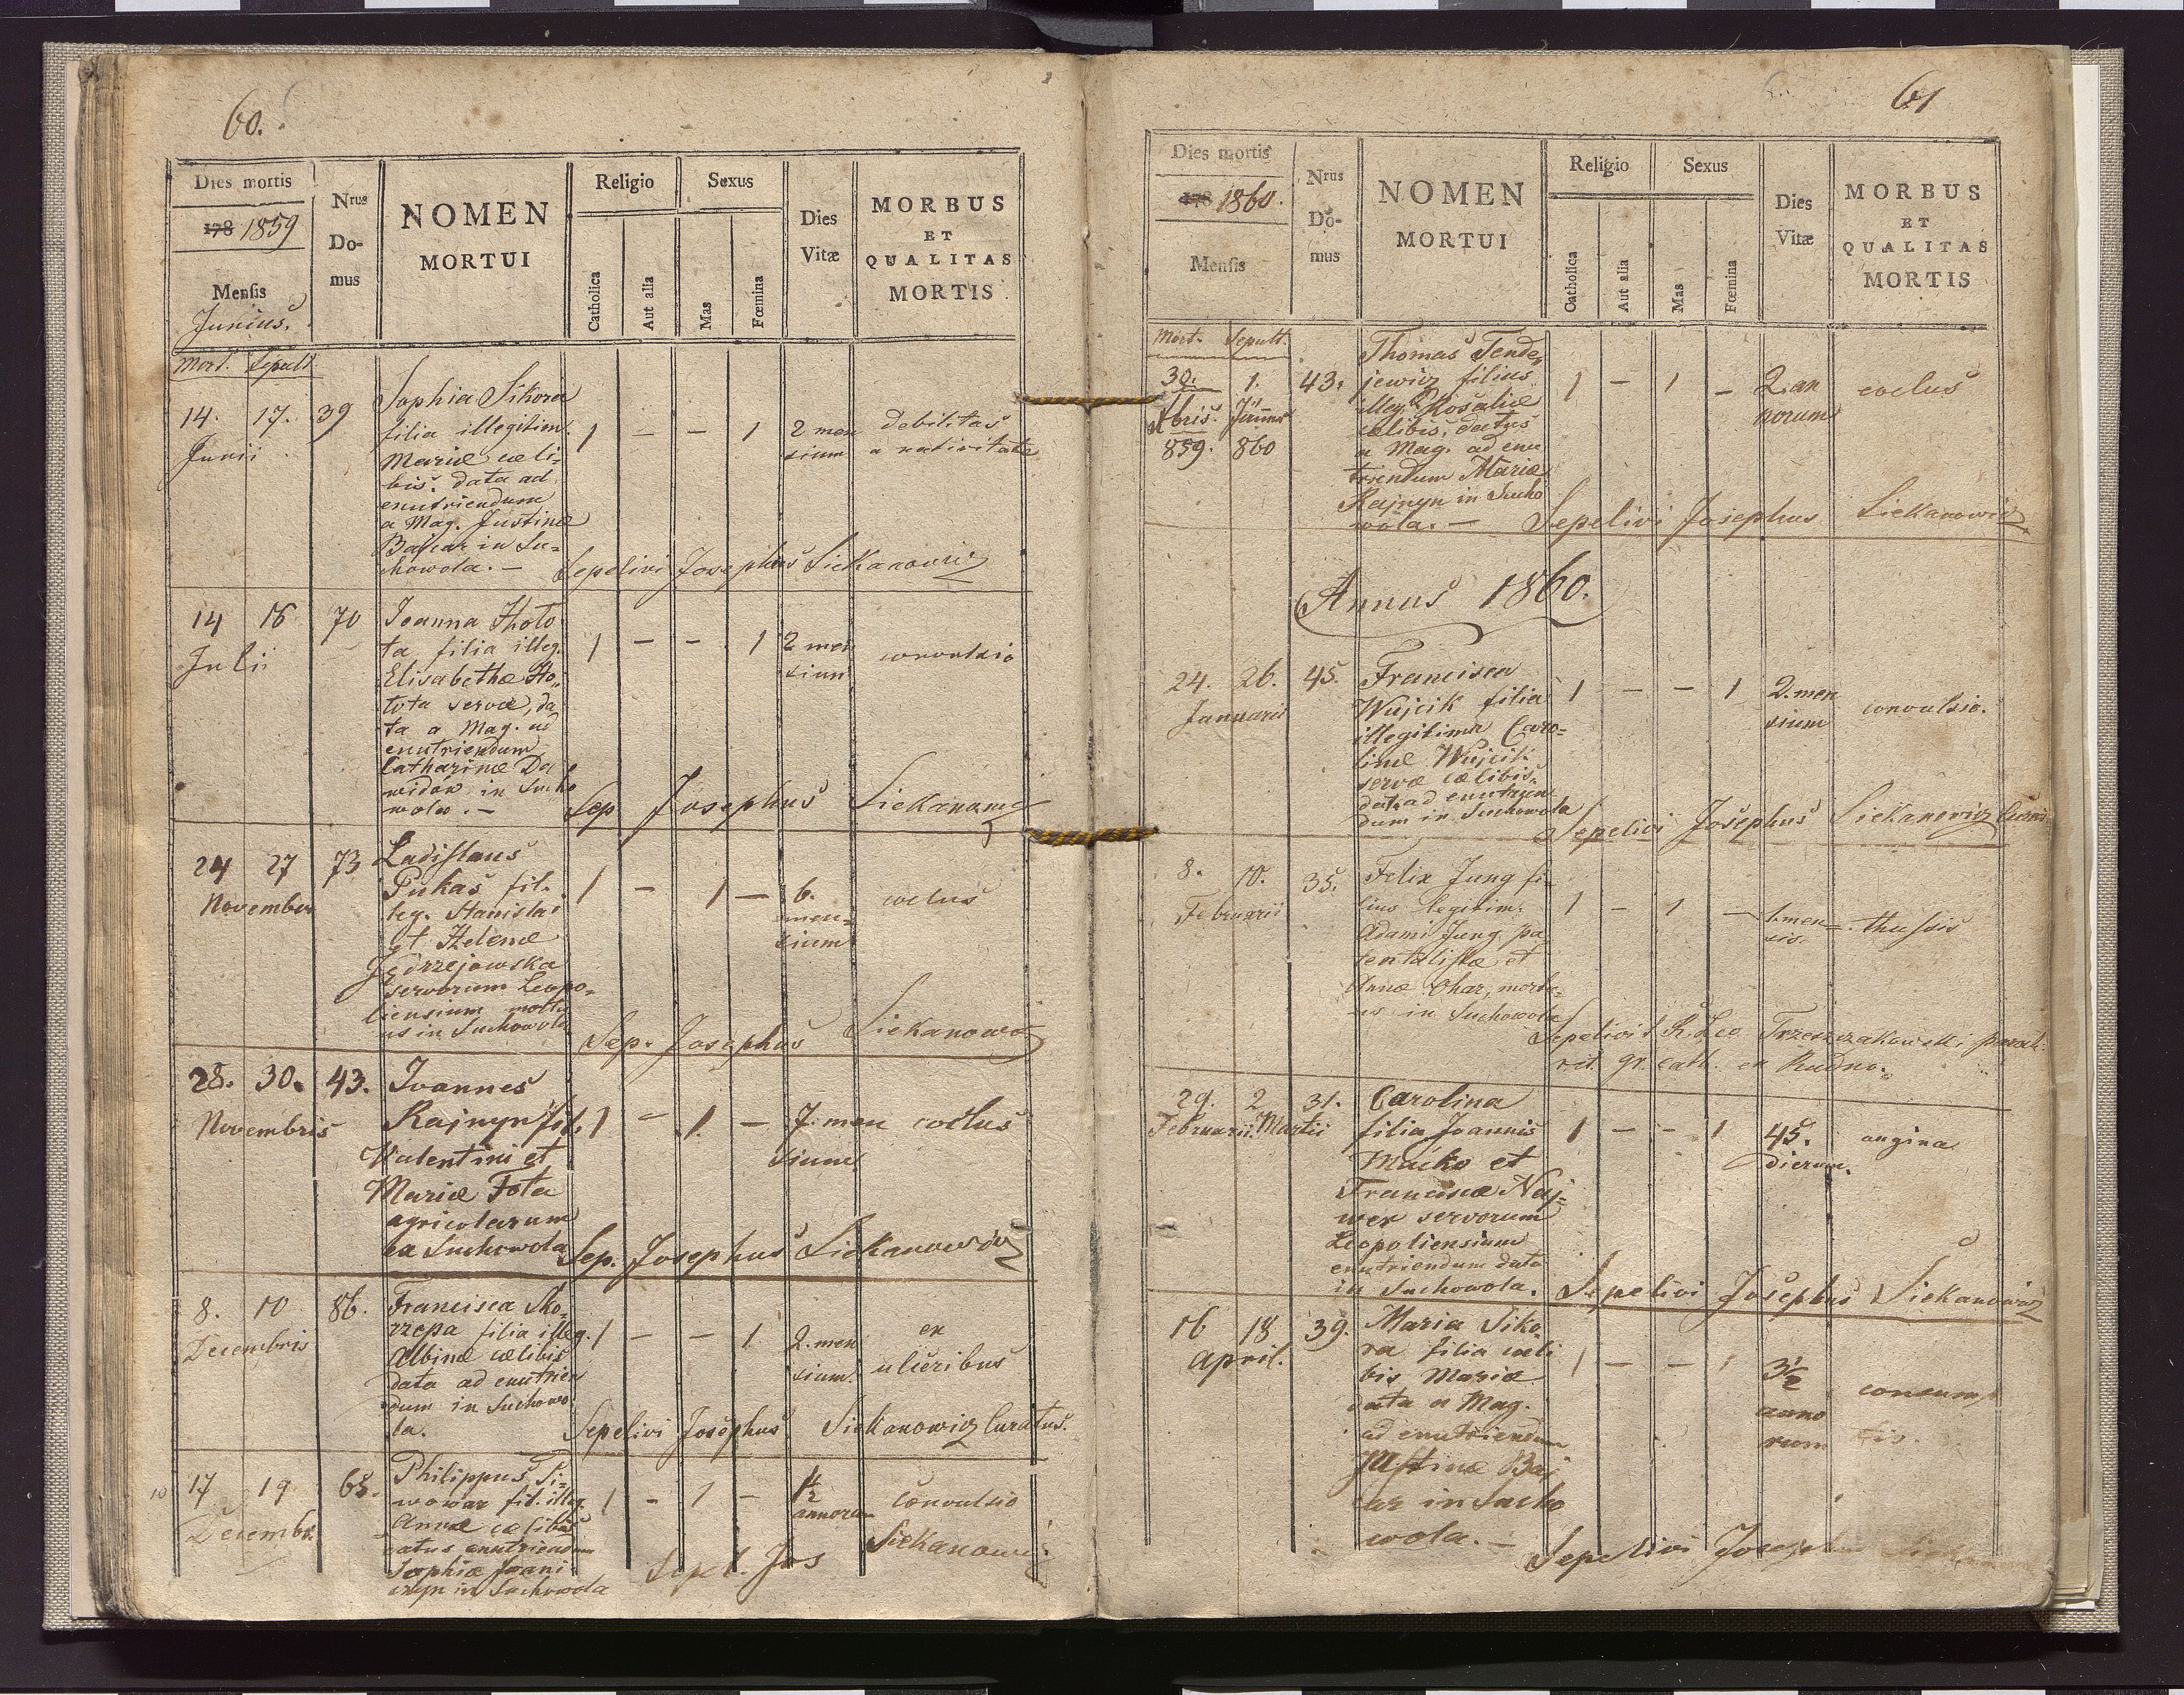 60.
Dies mortis
178 1859
Mensis
Junius.
Nrus
Do-
mus
NOMEN
MORTUI
Religio
Catholica
Aut alia
Sexus
Mas
Fœmina
Dies
Vitæ
MORBUS
ET
QUALITAS
MORTIS
Mort. Sepult.
14. 17. 39
Junii
Sophia Sikora
filia illegitim.
Mariæ cæli-
bis. data ad
enutriendum
a Mag. Justinæ
Bajcar in Su-
chowola. —
1 — — 1
2 men
sium
debilitas
a nativitate
Sepelivi Josephus Siekanowicz
14 16 70
Julii
Joanna Hoło
ta filia illeg.
Elisabethæ Ho-
łota servæ, da
ta a Mag. ad
enutriendum
Catharinæ Da
widów in Sucho
wola. —
1 — — 1
2 men
sium
convulsio
Sep Josephus Siekanowicz
24 27 73
November
Ladislaus
Pukas fil.
leg. Stanislai
et Helenæ
Jędrzejowska
servorum Leopo-
liensium mortu
us in Suchowola
1 — 1 —
6.
men-
sium
coelus
Sep. Josephus Siekanowicz
28. 30. 43.
Novembris
Ioannes
Rajnyn fil.
Valentini et
Mariæ Fota
agricolarum
ex Suchowola
1 — 1. —
7. men
sium
coelus
Sep. Josephus Siekanowicz
8. 10 86.
Decembris
Francisca Sko-
rzepa filia illeg.
Albinæ cælibis
data ad enutrien
dum in Suchowo
la.
1 — — 1
2. men
sium.
ex
ulceribus
Sepelivi Josephus Siekanowicz Curatus.
10 17 19 68.
Decembr.
Philippus Pi-
wowar fil. illeg.
Annæ cælibis
datus enutriendum
Sophiæ Joani
czyn in Suchowola
1 — 1 —
1½
annorum
Convulsio
Sepel. Jos Siekanowicz
61
Dies mortis
178 1860.
Mensis
Nrus
Do-
mus
NOMEN
MORTUI
Religio
Catholica
Aut alia
Sexus
Mas
Fœmina
Dies
Vitæ
MORBUS
ET
QUALITAS
MORTIS
Mort. Sepult.
30. 1. 43.
Xbris. Januar
859. 860
Thomas Tende-
jewicz filius
illeg. Rosaliæ
cælibis, datus
a Mag. ad enu
triendum Mariæ
Rajnyn in Sucho
wola. —
1 — 1 —
2. an
norum
coelus
Sepelivi Josephus Siekanowicz
Annus 1860.
24. 26. 45.
Januarii
Francisca
Wujcik filia
illegitima Caro-
linæ Wujcik
servæ cælibis.
data ad enutrien
dum in Suchowola
1 — — 1
2. men
sium
convulsio.
Sepelivi Josephus Siekanowicz Curat
8. 10. 35.
Februarii
Felix Jung fi-
lius legitim.
Adami Jung pa-
tentalistæ et
Annæ Ohar, mortu-
us in Suchowola
1 — 1 —
1. men-
sis.
thussis
Sepelivit R. Leo Trzeszczakowski paroch.
rit. gr. cath. ex Rudno.
29. 2 31.
Februarii. Martii
Carolina
filia Joannis
Maćko et
Franciscæ Naj-
wer servorum
Leopoliensium
enutriendum data
in Suchowola.
1 — — 1
45.
dierum.
angina
Sepelivi Josephus Siekanowicz
16 18 39.
April.
Maria Siko-
ra filia cæli
bis Mariæ
data a Mag.
ad enutriendum
Justinæ Baj
car in Sucho
wola. —
1 — — 1
3½
anno
rum
consump
tio.
Sepelivi Josephus